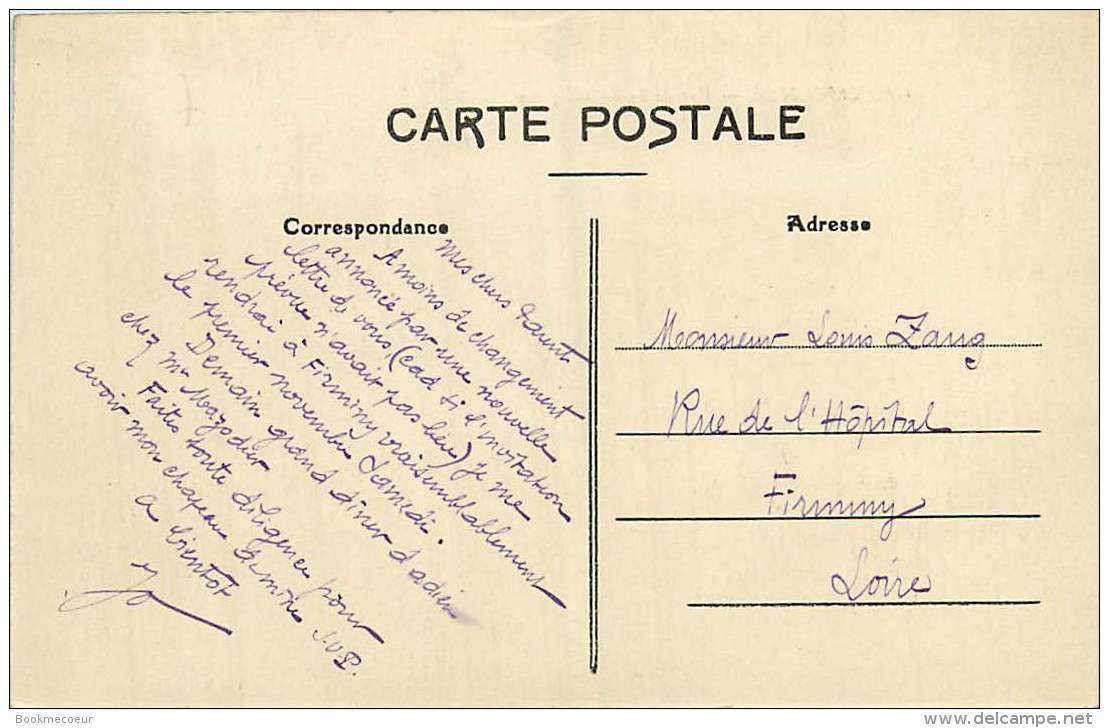 CARTE POSTALE
Correspondance
Mes chers
A moins de changement
annoncé par une nouvelle
lettre de vous, (cad si l'invitation
prévue n'avait pas lieu) je me
rendrai à Firminy vraisemblablement
le premier novembre Samedi.
Demain grand dîner d'adieu
chez Mr Mazodier
Faites toute diligence pour
avoir mon chapeau S.V.P.
a bientôt
Jo
Adresse
Monsieur Louis Zang
Rue de l'Hôpital
Firminy
Loire
Bookmecoeur
delcampe.net